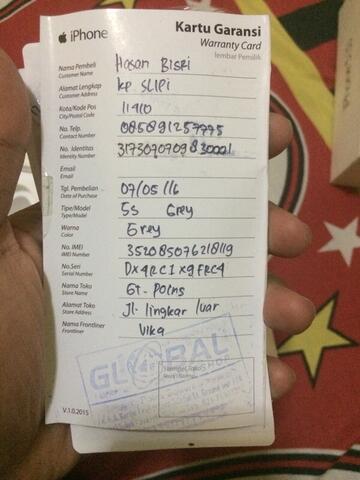 iPhone
Kartu Garansi
Warranty Card
lembar Pemilik
Nama Pembeli Hasan Bisri
Customer Name
Alamat Lengkap kp SLIPI
Customer Address
Kota/Kode Pos 11410
City/Postal Code
No. Telp. 085891257775
Contact Number
No. Identitas 3173070709830001
Identity Number
Email
Email
Tgl. Pembelian 07/05/16
Date of Purchase
Tipe/Model 5s Grey
Type/Model
Warna Grey
Color
No. IMEI 352085076218119
IMEI Number
No.Seri DX4RC1X9FRC4
Serial Number
Nama Toko Gt-Polns
Store Name
Alamat Toko Jl. lingkar luar
Store Address
Nama Frontliner Vika
Frontliner
GLOBAL
SHOP
V.1.0.2015